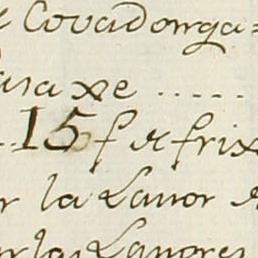 e Covadonga=
para xe .....
..15 f de frix
r la Lavor d
r las Lavores